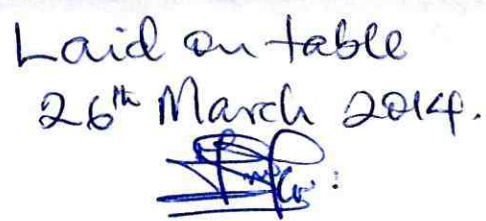 Laid on table
26th March 2014.